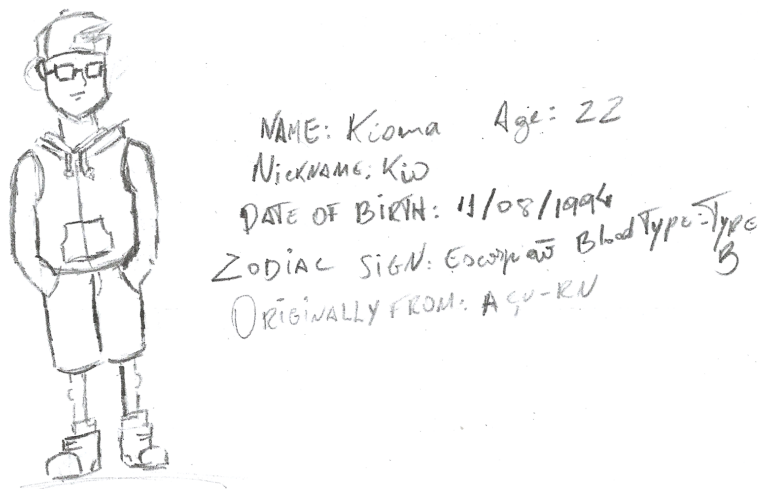 NAME: Kioma Age: 22
NICKNAME: Kio
DATE OF BIRTH: 11/08/1994
ZODIAC SIGN: Escorpião Blood Type: Type B
ORIGINALLY FROM: AÇU-RN